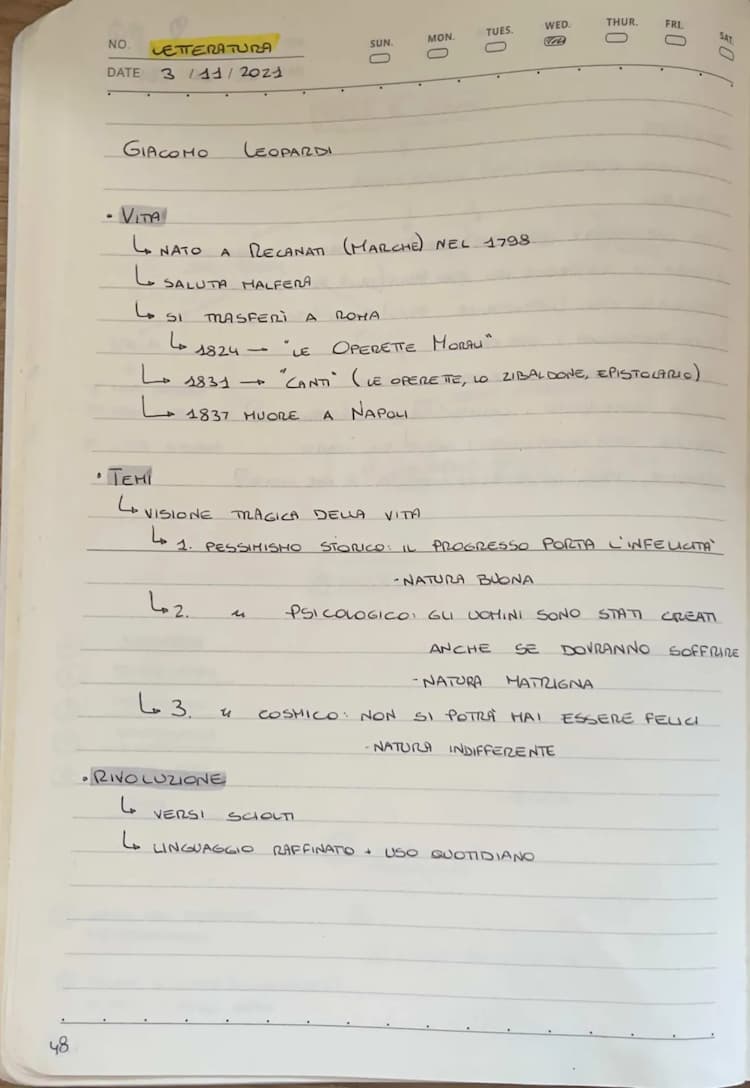 NO. LETTERATURA
SUN. MON. TUES. WED. THUR. FRI. SAT.
DATE 3 / 11 / 2021
GIACOMO LEOPARDI
• VITA
↳ NATO A RECANATI (MARCHE) NEL 1798
↳ SALUTA MALFERA
↳ SI TRASFERÌ A ROMA
↳ 1824 — "LE OPERETTE MORALI"
↳ 1831 → "CANTI" (LE OPERETTE, LO ZIBALDONE, EPISTOLARIO)
↳ 1837 MUORE A NAPOLI
• TEMI
↳ VISIONE TRAGICA DELLA VITA
↳ 1. PESSIMISMO STORICO: IL PROGRESSO PORTA L'INFELICITÀ
- NATURA BUONA
↳ 2. " PSICOLOGICO: GLI UOMINI SONO STATI CREATI
ANCHE SE DOVRANNO SOFFRIRE
- NATURA MATRIGNA
↳ 3. " COSMICO: NON SI POTRÀ MAI ESSERE FELICI
- NATURA INDIFFERENTE
• RIVOLUZIONE
↳ VERSI SCIOLTI
↳ LINGUAGGIO RAFFINATO + USO QUOTIDIANO
48